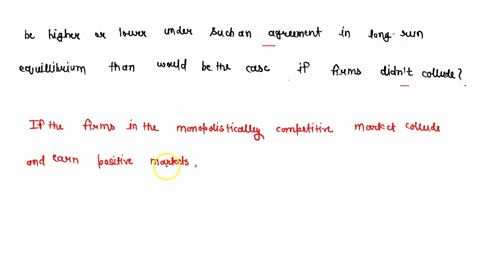 be higher or lower under such an agreement in long-run
equillibrium than would be the case if firms didn't collude?
If the firms in the monopolistically competitive market collude
and earn positive markets.